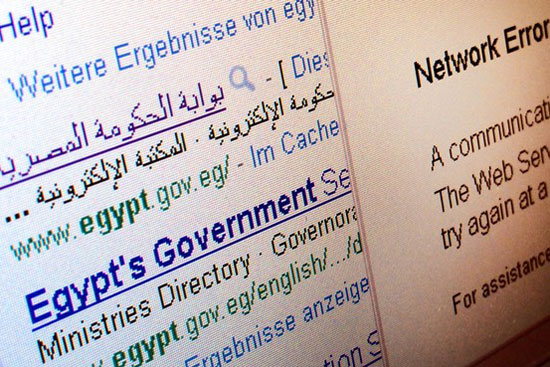 Help
Weitere Ergebnisse von egy
بوابة الحكومة المصرية - [ Dies
حكومة الإلكترونية · المكتبة الإلكترونية ...
www.egypt.gov.eg/ - Im Cache
Egypt's Government Se
Ministries Directory · Governora
www.egypt.gov.eg/english/.../d
Ergebnisse anzeige
tion S
Network Error
A communicat
The Web Serv
try again at a
For assistance